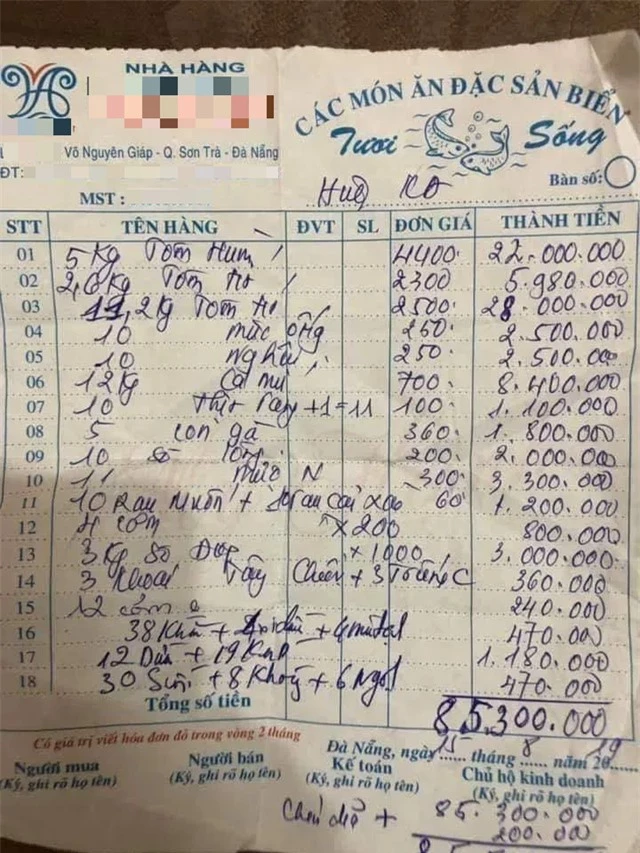 NHÀ HÀNG
CÁC MÓN ĂN ĐẶC SẢN BIỂN
Tươi Sống
Võ Nguyên Giáp - Q. Sơn Trà - Đà Nẵng
ĐT:
Bàn số:
MST:
STT TÊN HÀNG ĐVT SL ĐƠN GIÁ THÀNH TIỀN
01 5 Kg Tôm Hùm 4400 22.000.000
02 2,6 Kg Tôm 2300 5.980.000
03 11,2 Kg Tôm 2500 28.000.000
04 10 mực ống 250 2.500.000
05 10 nghêu 250 2.500.000
06 12 Kg Cá mú 700 8.400.000
07 10 +1=11 100 1.100.000
08 5 con gà 360 1.800.000
09 10 sò 200 2.000.000
10 11 mực N 300 3.300.000
11 10 Rau Muốn + 60 1.200.000
12 4 cơm x200 800.000
13 3 Kg Sò x1000 3.000.000
14 3 Khoai Tây Chiên + 3 360.000
15 12 cơm 240.000
16 38 Khăn + + 470.000
17 12 + 19 1.180.000
18 30 Suối + 8 + 6 Ngọt 470.000
Tổng số tiền 85.300.000
Có giá trị viết hóa đơn đỏ trong vòng 2 tháng
Đà Nẵng, ngày 15 tháng 8 năm 2019
Người mua Người bán Kế toán Chủ hộ kinh doanh
(Ký, ghi rõ họ tên) (Ký, ghi rõ họ tên) (Ký, ghi rõ họ tên) (Ký, ghi rõ họ tên)
85.300.000
+ 200.000